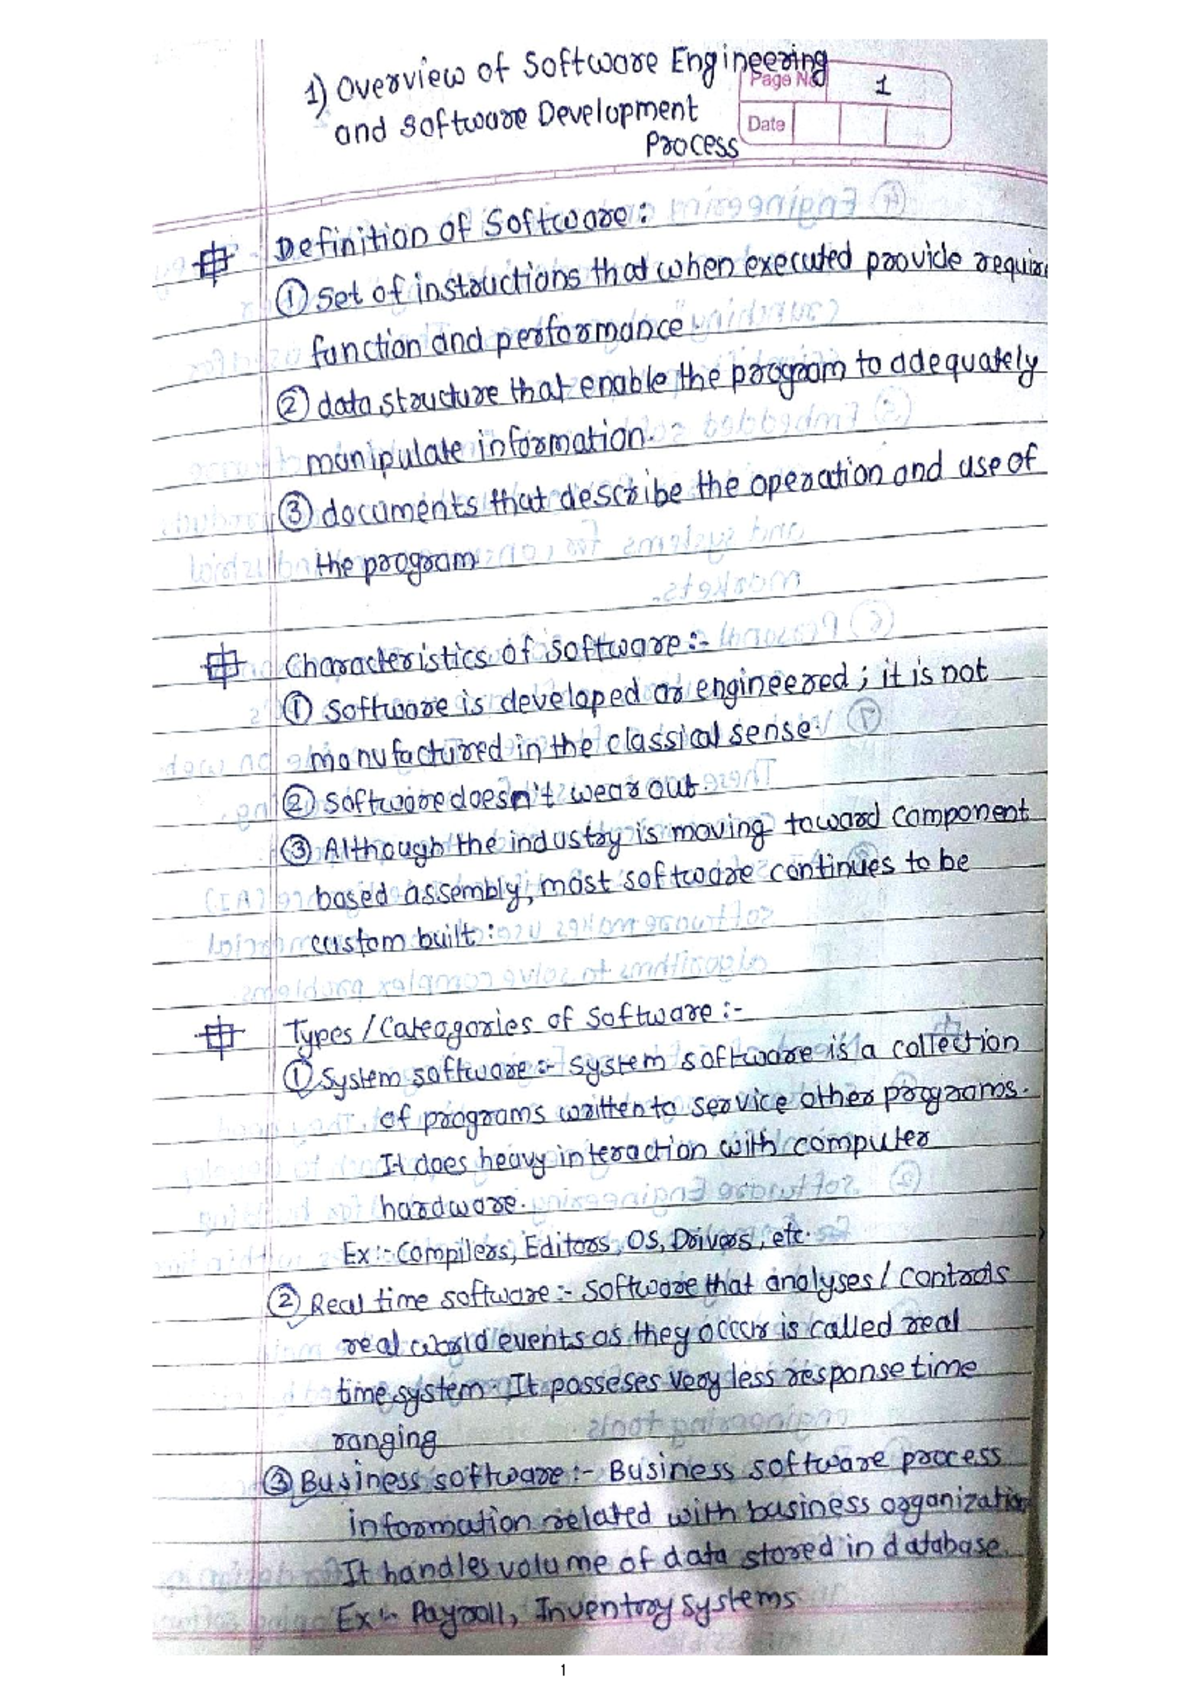 1) Overview of Software Engineering
and Software Development
Process
Page No. 1
Date
Definition of Software :
① Set of instructions that when executed provide require
function and performance
② data structure that enable the program to adequately
manipulate information.
③ documents that describe the operation and use of
the program
Characteristics of Software :-
① Software is developed or engineered ; it is not
manufactured in the classical sense.
② Software doesn't wear out.
③ Although the industry is moving toward component
based assembly, most software continues to be
custom built.
Types / Cateagories of Software :-
① System software :- System software is a collection
of programs written to service other programs.
It does heavy interaction with computer
hardware.
Ex :- Compilers, Editors, OS, Drivers, etc.
② Real time software :- Software that analyses / Controls
real world events as they occur is called real
time system. It posseses very less response time
ranging
③ Business software :- Business software process
information related with business organization
It handles volume of data stored in database.
Ex :- Payroll, Inventory systems
1